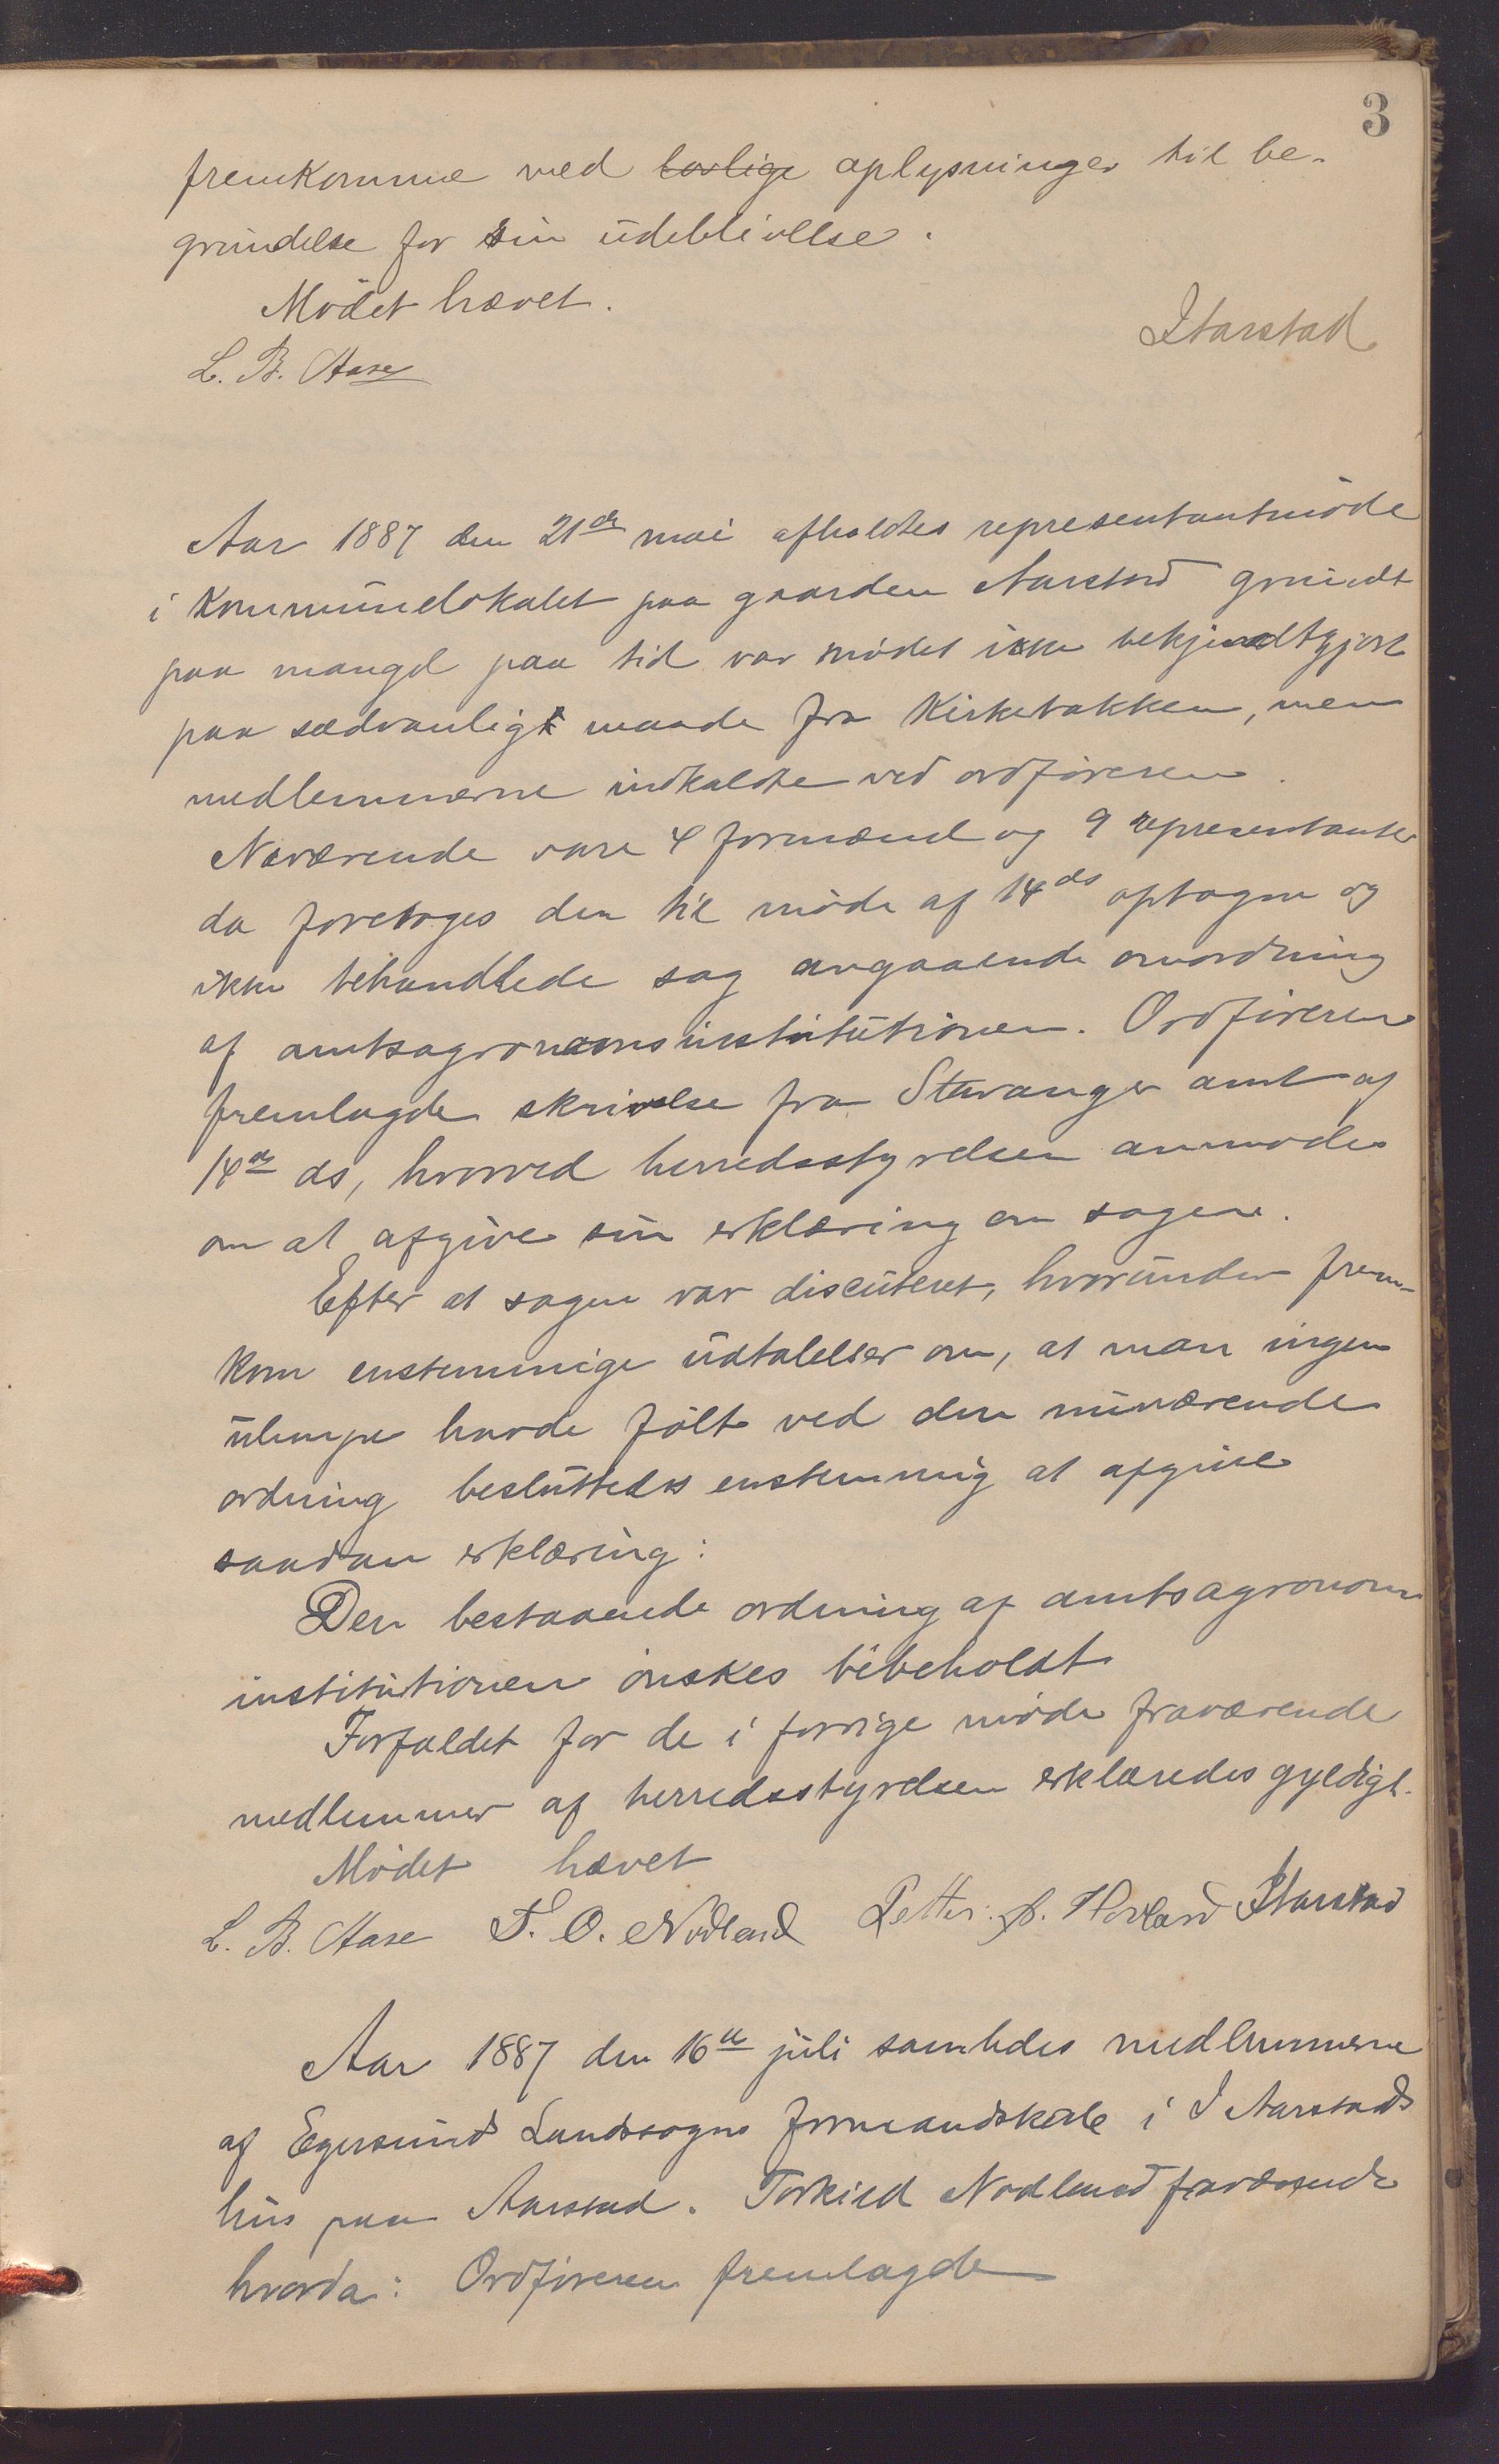 3
fremkomme med lovlige oplysninger til be-
grundelse for sin udeblivelse.
Mödet hævet.
IAarstad
L. B. Aase
Aar 1887 den 21de mai afholdtes representantmöde
i Kommunelokalet paa gaarden Aarstad grundt
paa mangel paa tid var mödet ikke bekjendtgjort
paa sædvanligt maade fra Kirkebakken, men
medlemmerne indkaldte ved ordföreren.
Nærværende vare 4 formænd og 9 representanter
da foretoges den til möde af 14ds optagne og
ikke behandlede sag angaaende omordning
af amtsagronomsinstitutionen. Ordföreren
fremlagde skrivelse fra Stavanger amt af
14de ds, hvorved herredsstyrelsen anmodes
om at afgive sin erklæring om sagen.
Efter at sagen var discuteret, hvorunder frem-
kom enstemmige udtalelser om, at man ingen
ulempe havde fölt ved den nuværende
ordning besluttedes enstemmig at afgive
saadan erklæring:
Den bestaaende ordning af amtsagronom
institutionen önskes bibeholdt
Forfaldet for de i forrige möde fraværende
medlemmer af herredsstyrelsen erklæredes gyldigt.
Mödet hævet
L. B. Aase T. O. Nodland Petter. A. Hovland IAarstad
Aar 1887 den 16de juli samledes medlemmerne
af Egersunds Landsogns formandskab i I Aarstads
hus paa Aarstad. Torkild Nodland fraværende
hvorda: Ordföreren fremlagde